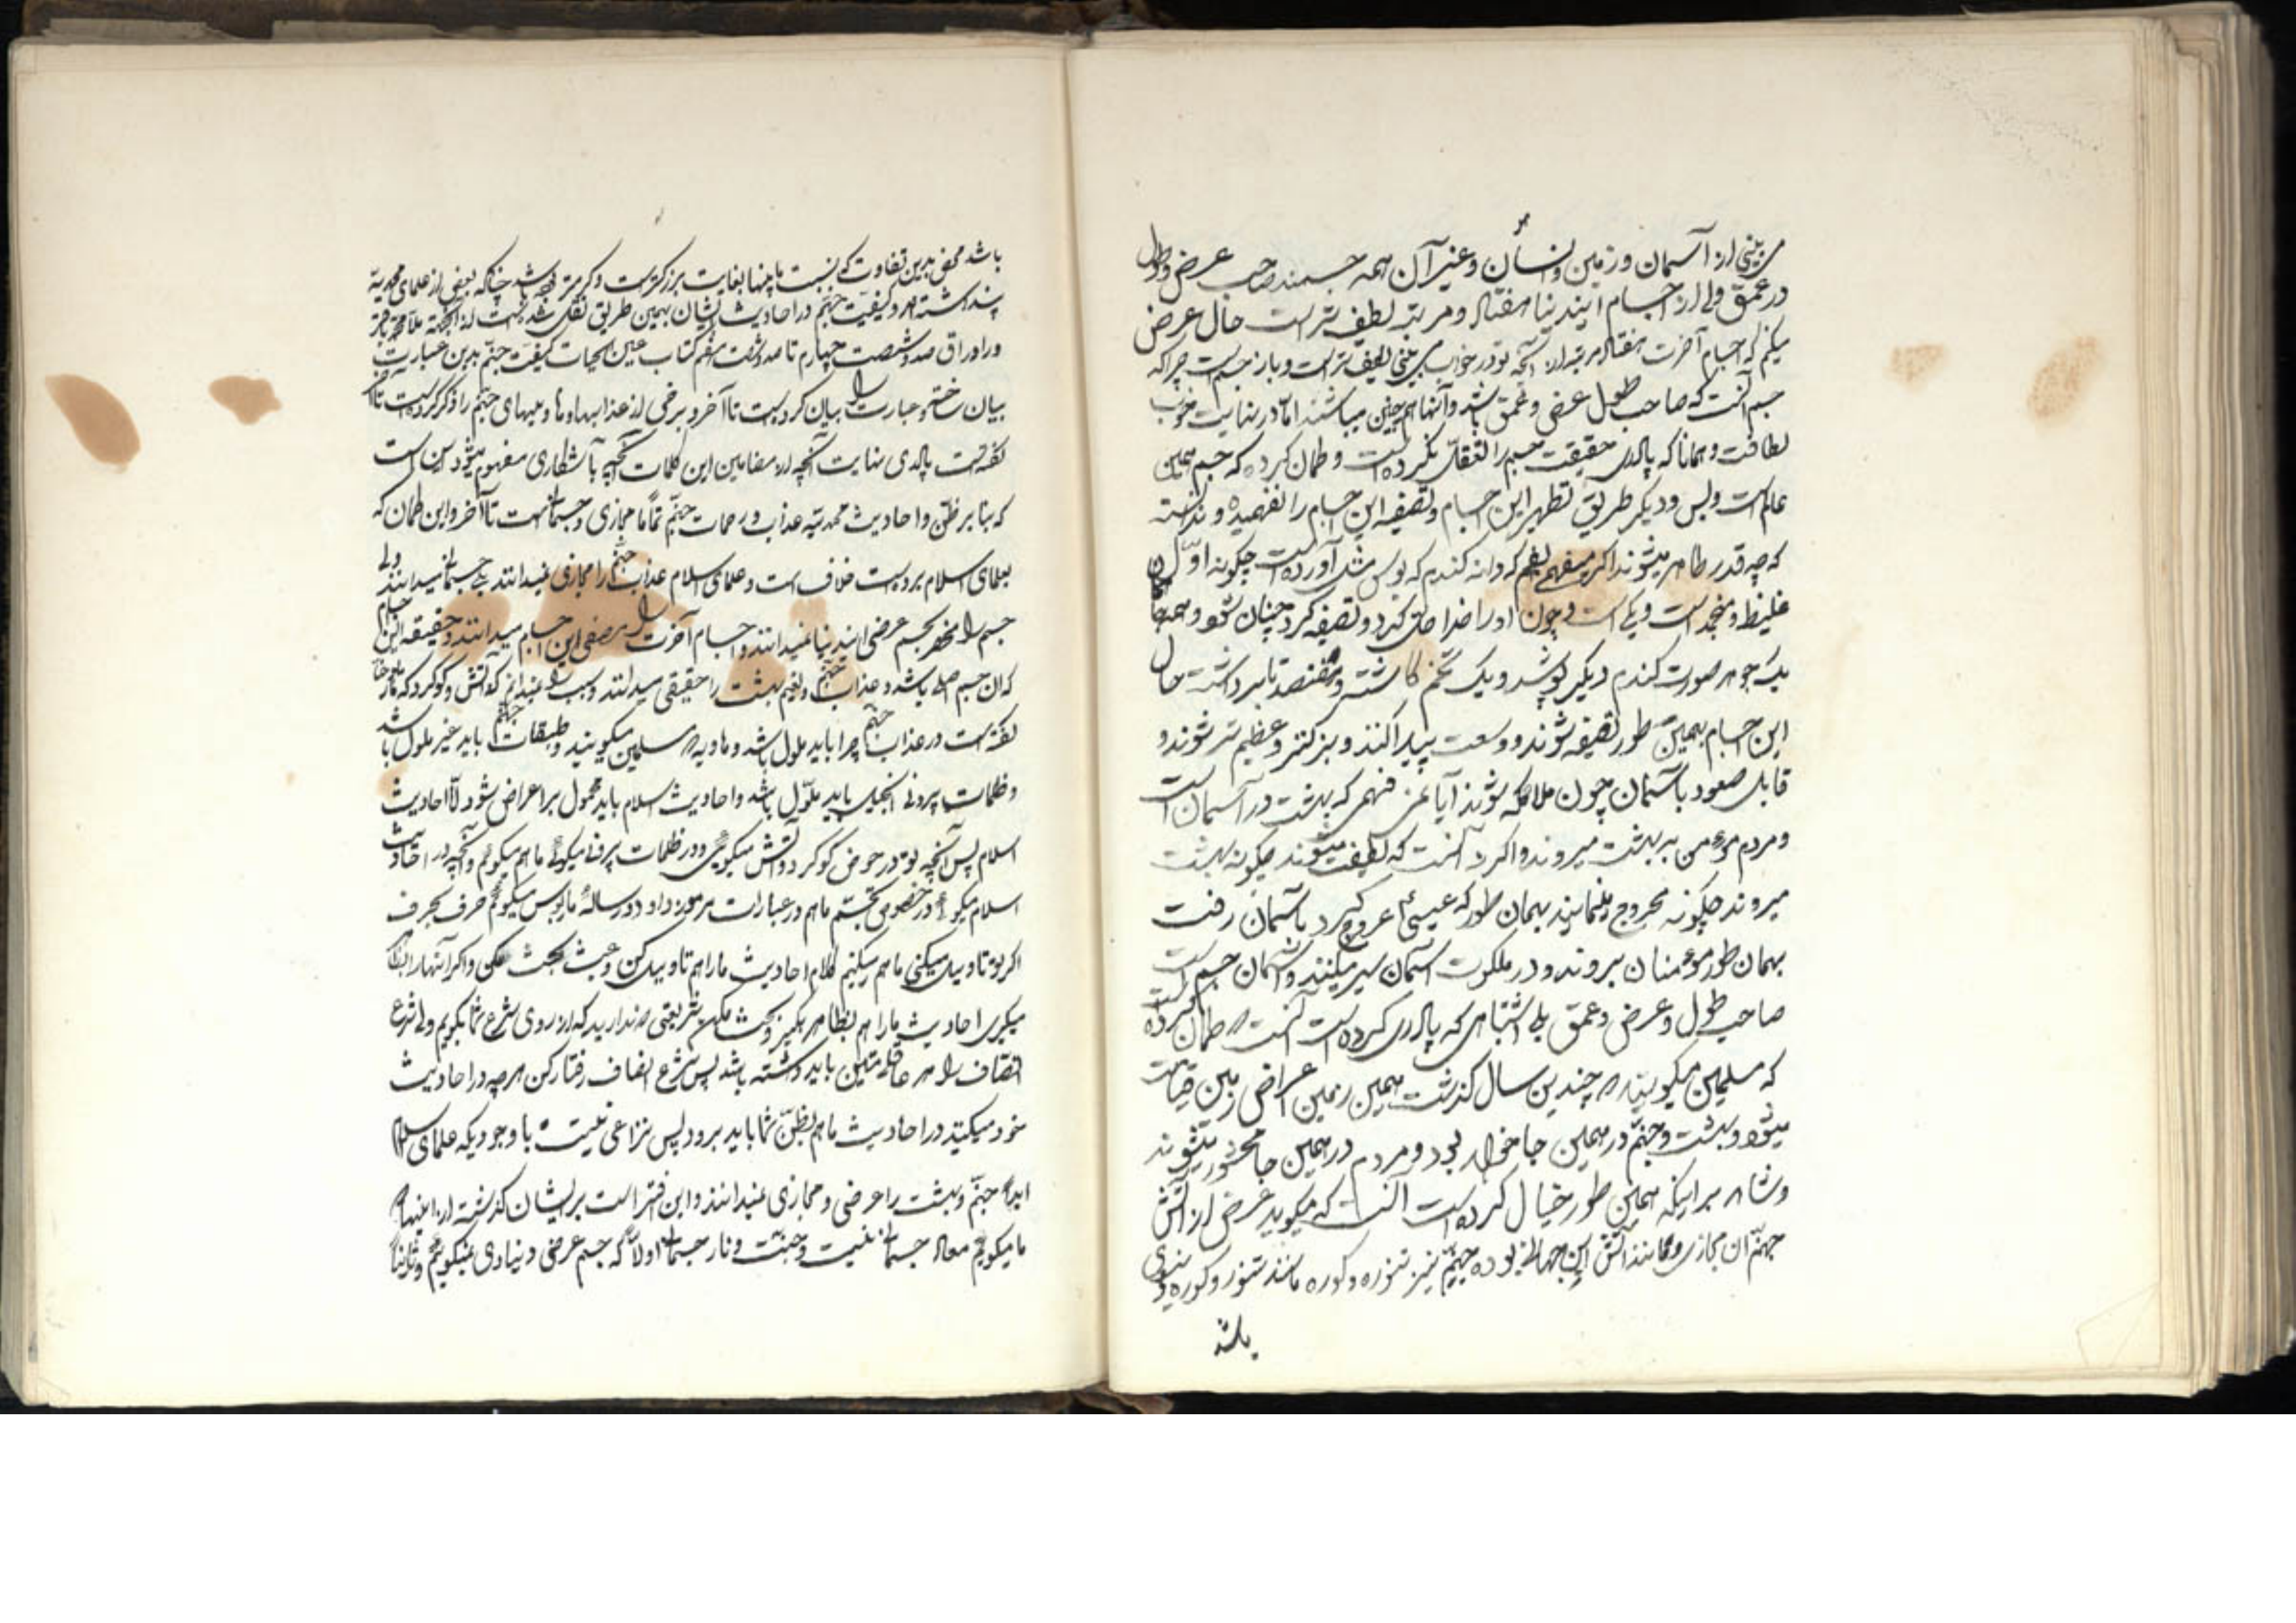 می بینی از آسمان و زمین و انسان و غیر آن همه جسمند صاحب عرض و طول
و عمق ولی از اجسام این دنیا هفتاد مرتبه لطیف‌تر است حال عرض
میکنم که اجسام آخرت هفتاد مرتبه از آنچه تو در خواب می بینی لطیف‌تر است و باز جسم است چرا که
جسم آنست که صاحب طول عرض و عمق باشد و آنها هم چنین میباشند اما در نهایت
لطافت و همانا که پادری حقیقت جسم را تعقل نکرده است و گمان کرده که جسم همین
عالم است و بس و دیگر طریق تطهیر این اجسام و تصفیه این اجسام را نفهمیده و ندانسته
که چه قدر طاهر میشوند اگر میفهمی بفهم که دانه گندم که بوس مثل آورده است چگونه اول
غلیظ و منجمد است و یکی است و چون او را خدا حل کرد و تصفیه کرد چنان شود و همه جا
یک جوهر صورت گندم دیگر پوشید و یک تخم کاشته و هفتصد تا برداشت حال
این اجسام بهمین طور تصفیه شوند و وسعت پیدا کنند و بزرگتر و عظیم‌تر شوند و
قابل صعود بآسمان چون ملائکه شوند آیا نمی فهمی که بهشت در آسمان است
و مردم مؤمن به بهشت میروند و اگر نه آنست که لطیف میشوند چگونه بهشت
میروند چگونه عروج مینمایند بهمان طور که عیسی ع عروج کرد بآسمان رفت
بهمان طور مؤمنان میروند و در ملکوت آسمان سیر میکنند و آسمان جسم است
صاحب طول و عرض و عمق بلی اشتباهی که پادری کرده است آنست که گمان کرده است
که مسلمین میگویند که چندین سال گذشت همین زمین اعراض زمین قیامت
میشود و بهشت و جهنم در همین جا خواهد بود و مردم در همین جا محشور میشوند
و شاهد بر اینکه همین طور خیال کرده است آنست که میگوید غرض از آتش
جهنم آن مجازی و مانند آتش این جهان بوده جهنم نیز تنوره و کوره مانند تنور و کوره دنیوی
باشد
باشد محض بدین تفاوت که نسبت باینها بغایت بزرگتر است و گرمتر باشد چنانکه بعضی از علمای محمدیه
پنداشته‌اند و کیفیت جهنم در احادیث ایشان بهمین طریق نقل شده است از آنجمله ملا محمد باقر
در اوراق صد و شصت چهارم تا صد و شصت هفتم کتاب عین الحیات کیفیت جهنم بدین عبارت
بیان ساخته و عبارت را بیان کرده است تا آخر و برخی از عذابها و مارها و بلیهای جهنم را ذکر کرده است تا آنکه
گفته است پادری نهایت آنچه از مضامین این کلمات آنچه بآشکاری مفهوم میشود این است
که بنابر ظن و احادیث محمدیه عذاب و زحمات جهنم تماما مجازی و جسمانیست تا آخر و این گمان که
بعلمای اسلام برده است خلاف است و علمای اسلام عذاب جهنم را مجازی نمیدانند بلی جسمانی میدانند ولی
جسم را منحصر بجسم عرضی این دنیا نمیدانند و اجسام آخرت را مصفی این اجسام میدانند و حقیقة این اجسام
که آن جسم اصلی باشد و عذاب جهنم و نعیم بهشت را حقیقی میدانند و سبب را نمیدانم که آتش و گوگرد که
گفته است در عذاب جهنم چرا باید مأول باشد و هاویه که مسلمین میگویند و طبقات جهنم باید غیر مأول باشد
و ظلمات بیرونی انجیل باید مأول باشد و احادیث اسلام باید محمول بر اعراض شود الا احادیث
اسلام پس آنچه تو در حوض گوگرد و آتش میگوئی و در ظلمات بیرونی میگوئی ما هم میگوئیم و آنچه در احادیث
اسلام میگوئی در خصوص تجسم ما هم در عبارات مزمور داود و رسالۀ مارپوس میگوئیم حرف بحرف
اگر تو تاویل میکنی ما هم میکنیم کلام احادیث ما را هم تاویل کن و عبث بحث مکن و اگر آنها را بظاهر
میگیری احادیث ما را هم بظاهر بگیر و بحث مکن شریعتی ندارید که از روی شرع شما بگویم ولی شرع
انصاف را هر عاقل متین باید داشته باشد پس بشرع انصاف رفتار کن هرچه در احادیث
خود میکنید در احادیث ما هم بظن شما باید برود پس نزاعی نیست با وجودیکه علمای اسلام
ابدا جهنم و بهشت را عرضی و مجازی نمیدانند و این افترا است بر ایشان گذشته از اینها
ما میگوئیم معاد جسمانی نیست و جنت و نار جسمانی اولا که جسم عرضی دنیاوی نمیگوئیم و ثانیا